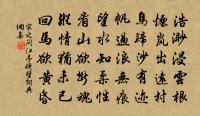 浩渺浸雲根
煙嵐出遠村
鳥歸沙有跡
帆過浪無痕
望水知柔性
看山欲斷魂
縱情猶未已
回馬欲黃昏
宋之问江亭晚望詞典
網集